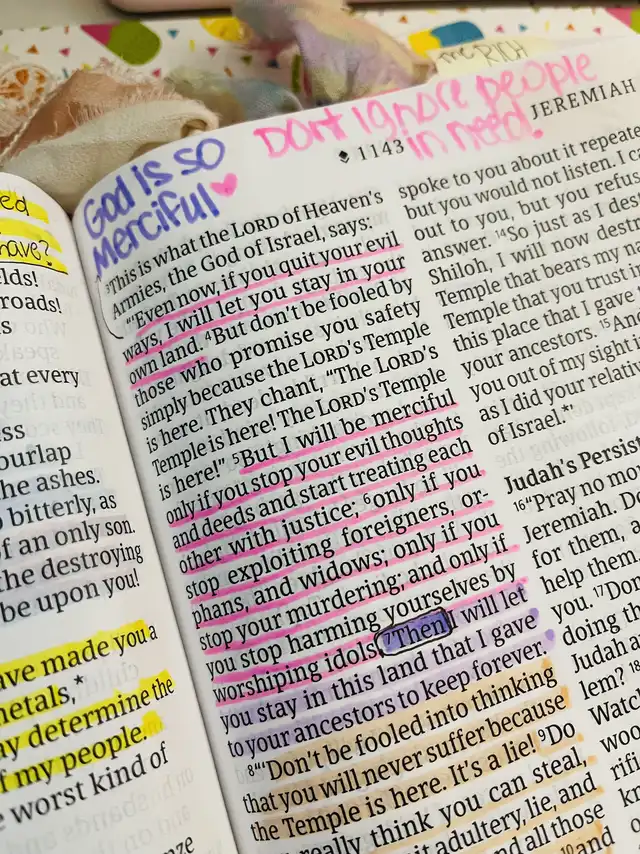 the RICH
Don't ignore people
in need.
God is so
Merciful
1143
JEREMIAH
ed
have?
elds!
roads!
at every
ss
he ashes.
bitterly, as
f an only son.
the destroying
be upon you!
ave made you a
etals,*
y determine the
f my people.
e worst kind of
nze
3This is what the LORD of Heaven's
Armies, the God of Israel, says:
"'Even now, if you quit your evil
ways, I will let you stay in your
own land. 4But don't be fooled by
those who promise you safety
simply because the LORD's Temple
is here! They chant, "The LORD's
Temple is here! The LORD's Temple
is here!" 5But I will be merciful
only if you stop your evil thoughts
and deeds and start treating each
other with justice; 6only if you
stop exploiting foreigners, or-
phans, and widows; only if you
stop your murdering; and only if
you stop harming yourselves by
worshiping idols. 7Then I will let
you stay in this land that I gave
to your ancestors to keep forever.
8"'Don't be fooled into thinking
that you will never suffer because
the Temple is here. It's a lie! 9Do
really think you can steal,
it adultery, lie, and
nd all those
10and
spoke to you about it repeate
but you would not listen. I ca
out to you, but you refus
answer. 14So just as I des
Shiloh, I will now destr
Temple that bears my n
Temple that you trust i
this place that I gave
your ancestors. 15An
you out of my sight i
as I did your relativ
of Israel.*'
Judah's Persis
16"Pray no mo
Jeremiah. Do
for them, a
help them
you. 17Don
doing th
Judah a
lem? 18
Watc
woo
rifi
kn
o